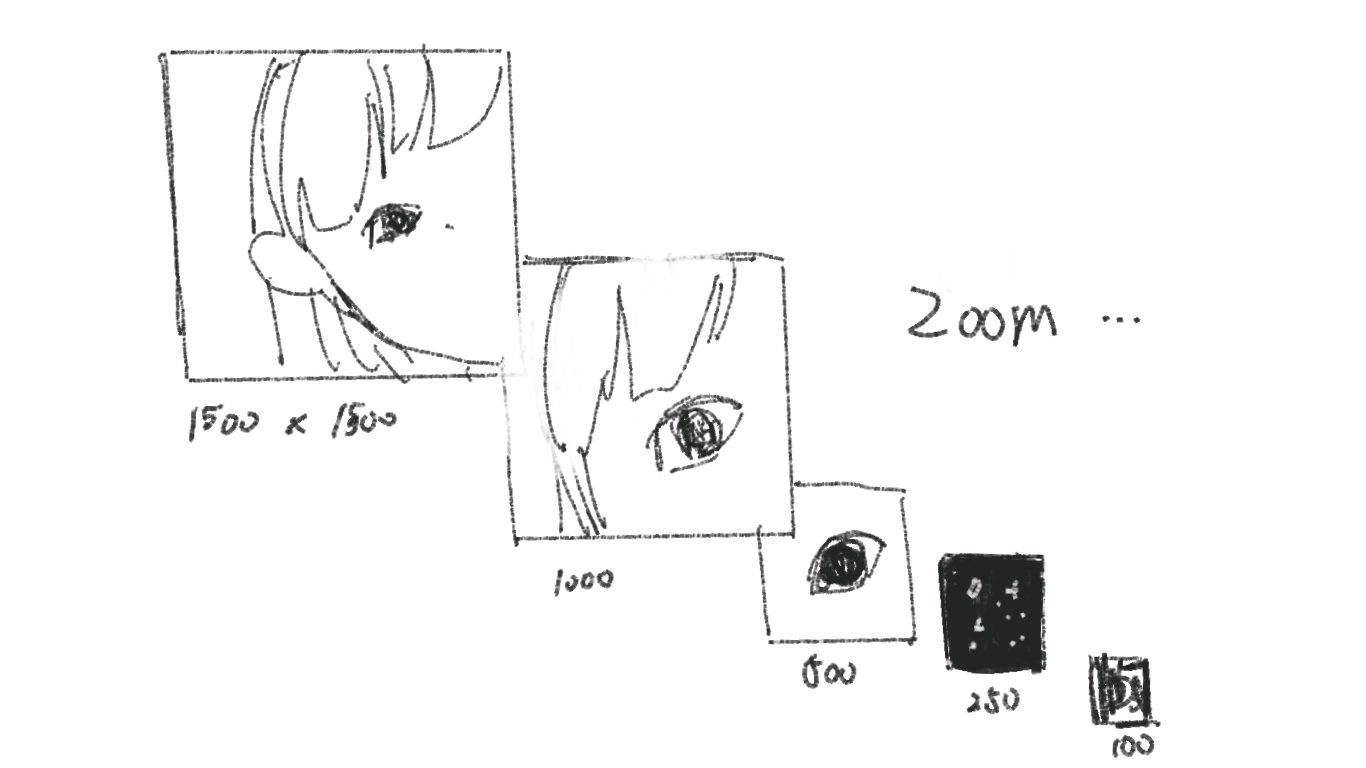 Zoom ...
1500 x 1500
1000
500
250
100